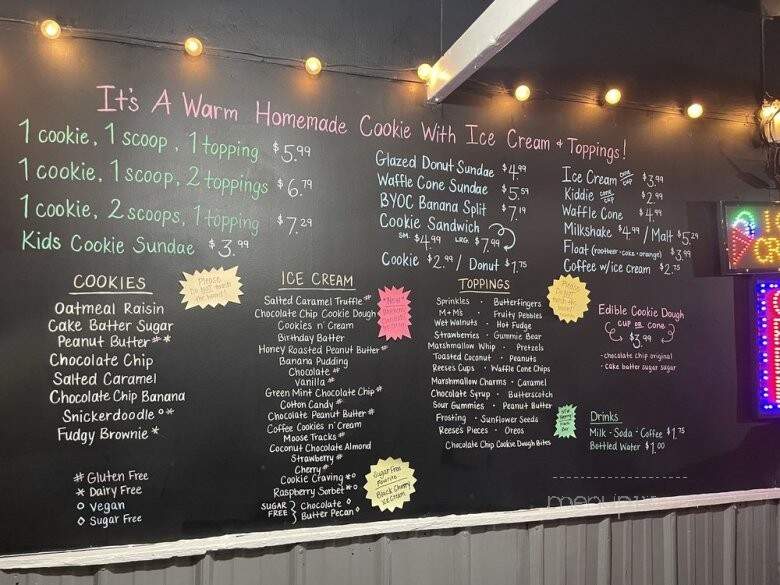 It's A Warm Homemade Cookie With Ice Cream & Toppings!
1 cookie, 1 scoop, 1 topping $5.99
1 cookie, 1 scoop, 2 toppings $6.79
1 cookie, 2 scoops, 1 topping $7.29
Kids Cookie Sundae $3.99
Glazed Donut Sundae $4.99
Waffle Cone Sundae $5.59
BYOC Banana Split $7.19
Cookie Sandwich
SM. $4.99 LRG. $7.99
Cookie $2.99 / Donut $1.75
Ice Cream cone cup $3.99
Kiddie cone cup $2.99
Waffle Cone $4.99
Milkshake $4.99 / Malt $5.29
Float (rootbeer-coke-orange) $3.99
Coffee w/ice cream $2.75
COOKIES
Please
Do not touch
the board!
Oatmeal Raisin
Cake Batter Sugar
Peanut Butter#*
Chocolate Chip
Salted Caramel
Chocolate Chip Banana
Snickerdoodle o*
Fudgy Brownie *
# Gluten Free
* Dairy Free
o Vegan
◇ Sugar Free
ICE CREAM
Salted Caramel Truffle#
Chocolate Chip Cookie Dough
Cookies n' Cream
Birthday Batter
Honey Roasted Peanut Butter#
Banana Pudding
Chocolate #
Vanilla #
Green Mint Chocolate Chip#
Cotton Candy #
Chocolate Peanut Butter#
Coffee Cookies n' Cream
Moose Tracks#
Coconut Chocolate Almond
Strawberry #
Cherry#
Cookie Craving *o
Raspberry Sorbet#*o
SUGAR FREE } Chocolate ◇
Butter Pecan ◇
*New*
Sugar Free
Favorite
Black Cherry
Ice Cream
TOPPINGS
Sprinkles · Butterfingers
M+M's · Fruity Pebbles
Wet Walnuts · Hot Fudge
Strawberries · Gummie Bear
Marshmallow Whip · Pretzels
Toasted Coconut · Peanuts
Reeses Cups · Waffle Cone Chips
Marshmallow Charms · Caramel
Chocolate Syrup · Butterscotch
Sour Gummies · Peanut Butter
Frosting · Sunflower Seeds
Reese's Pieces · Oreos
Chocolate Chip Cookie Dough Bites
Please
Do not touch
the board!
Edible Cookie Dough
CUP or CONE
$3.99
- chocolate chip original
- cake batter sugar
Drinks
Milk - Soda - Coffee $1.75
Bottled Water $1.00